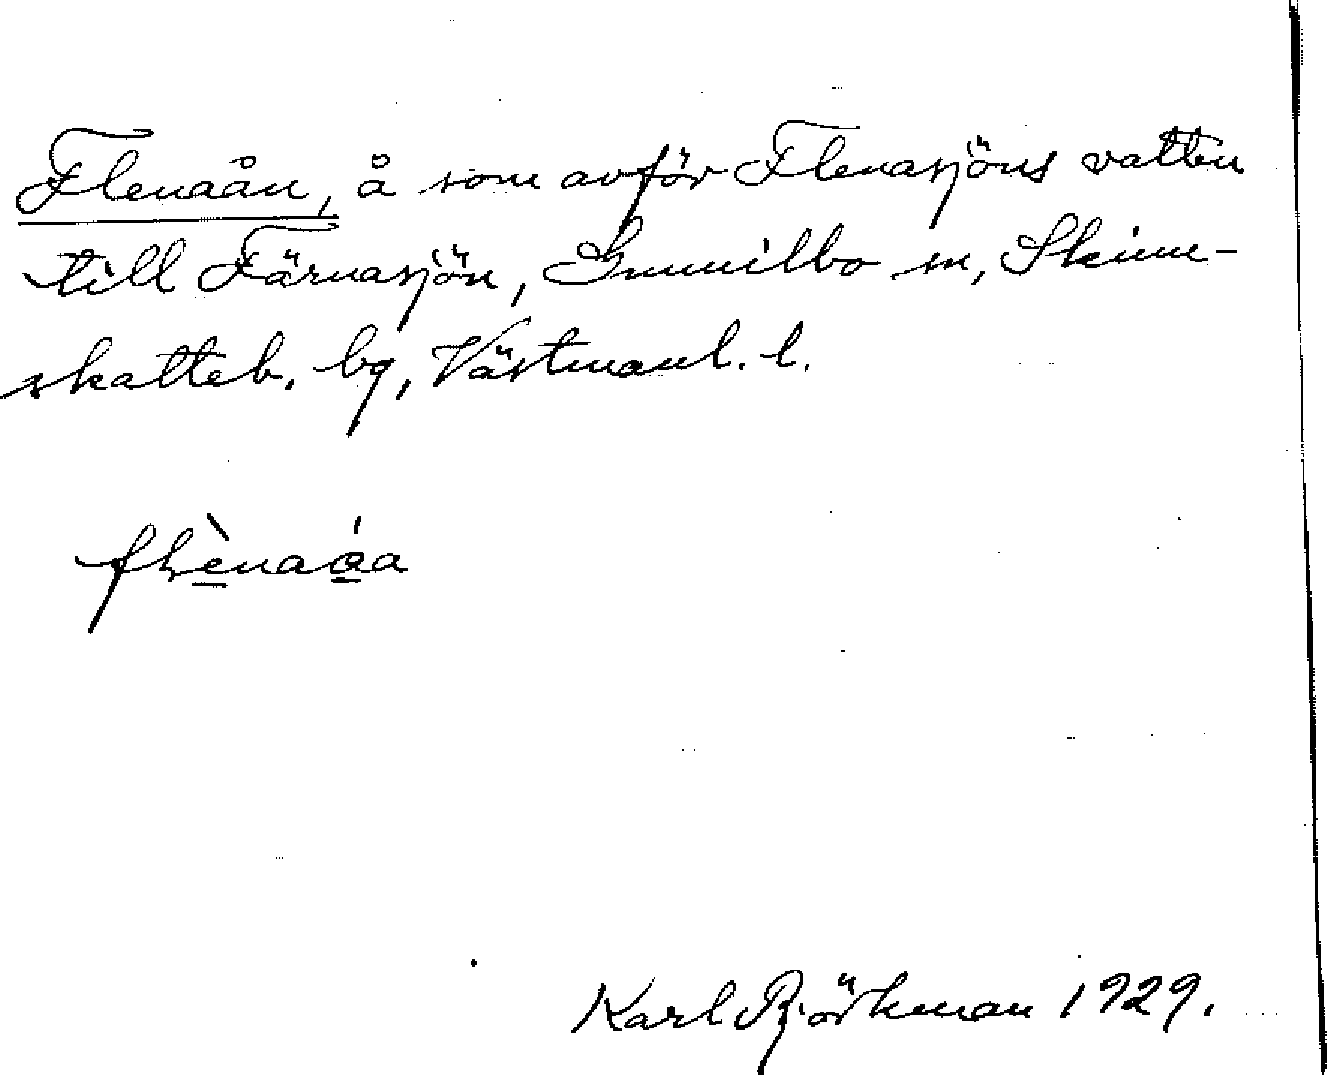 Flenaån, å som avför Flenasjöns vatten
till Färnasjön, Gunnilbo sn, Skinn-
skatteb. bg, Västmanl. l.
flènaáa
Karl Björkman 1929.